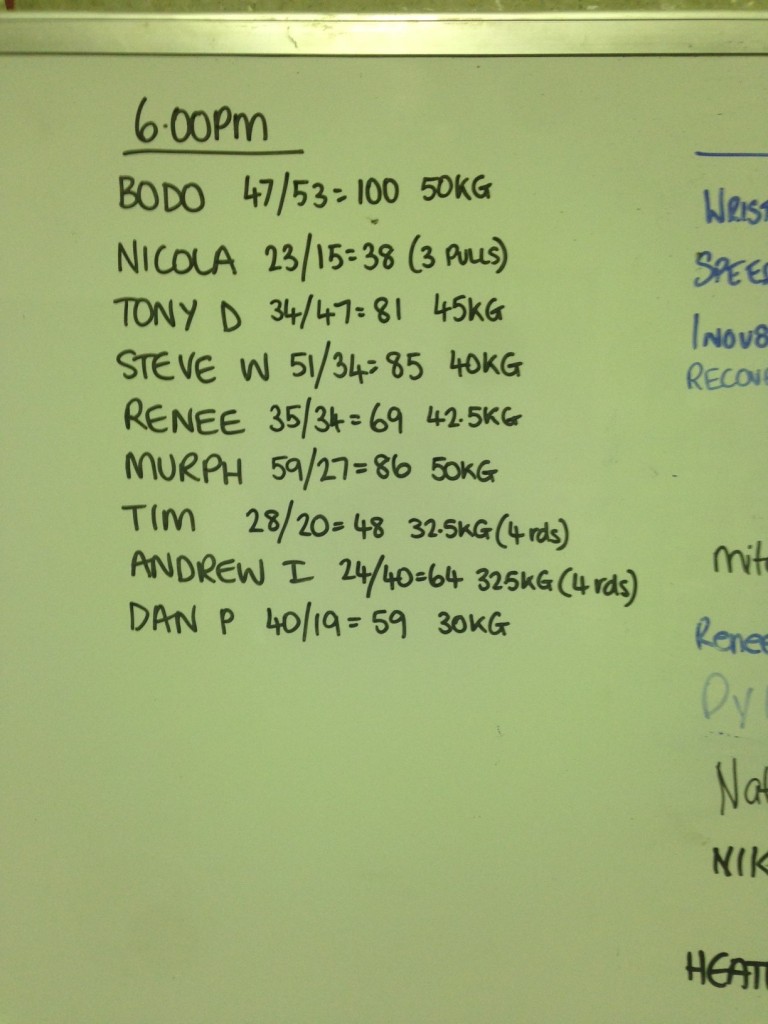 6.00PM
BODO 47/53=100 50KG
NICOLA 23/15=38 (3 PULLS)
TONY D 34/47=81 45KG
STEVE W 51/34=85 40KG
RENEE 35/34=69 42.5KG
MURPH 59/27=86 50KG
TIM 28/20=48 32.5KG (4 rds)
ANDREW I 24/40=64 325KG (4 rds)
DAN P 40/19=59 30KG
Renee
NIK